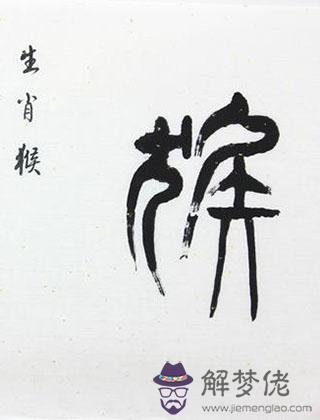 生肖猴
猴
解梦佬
www.jiemenglao.com